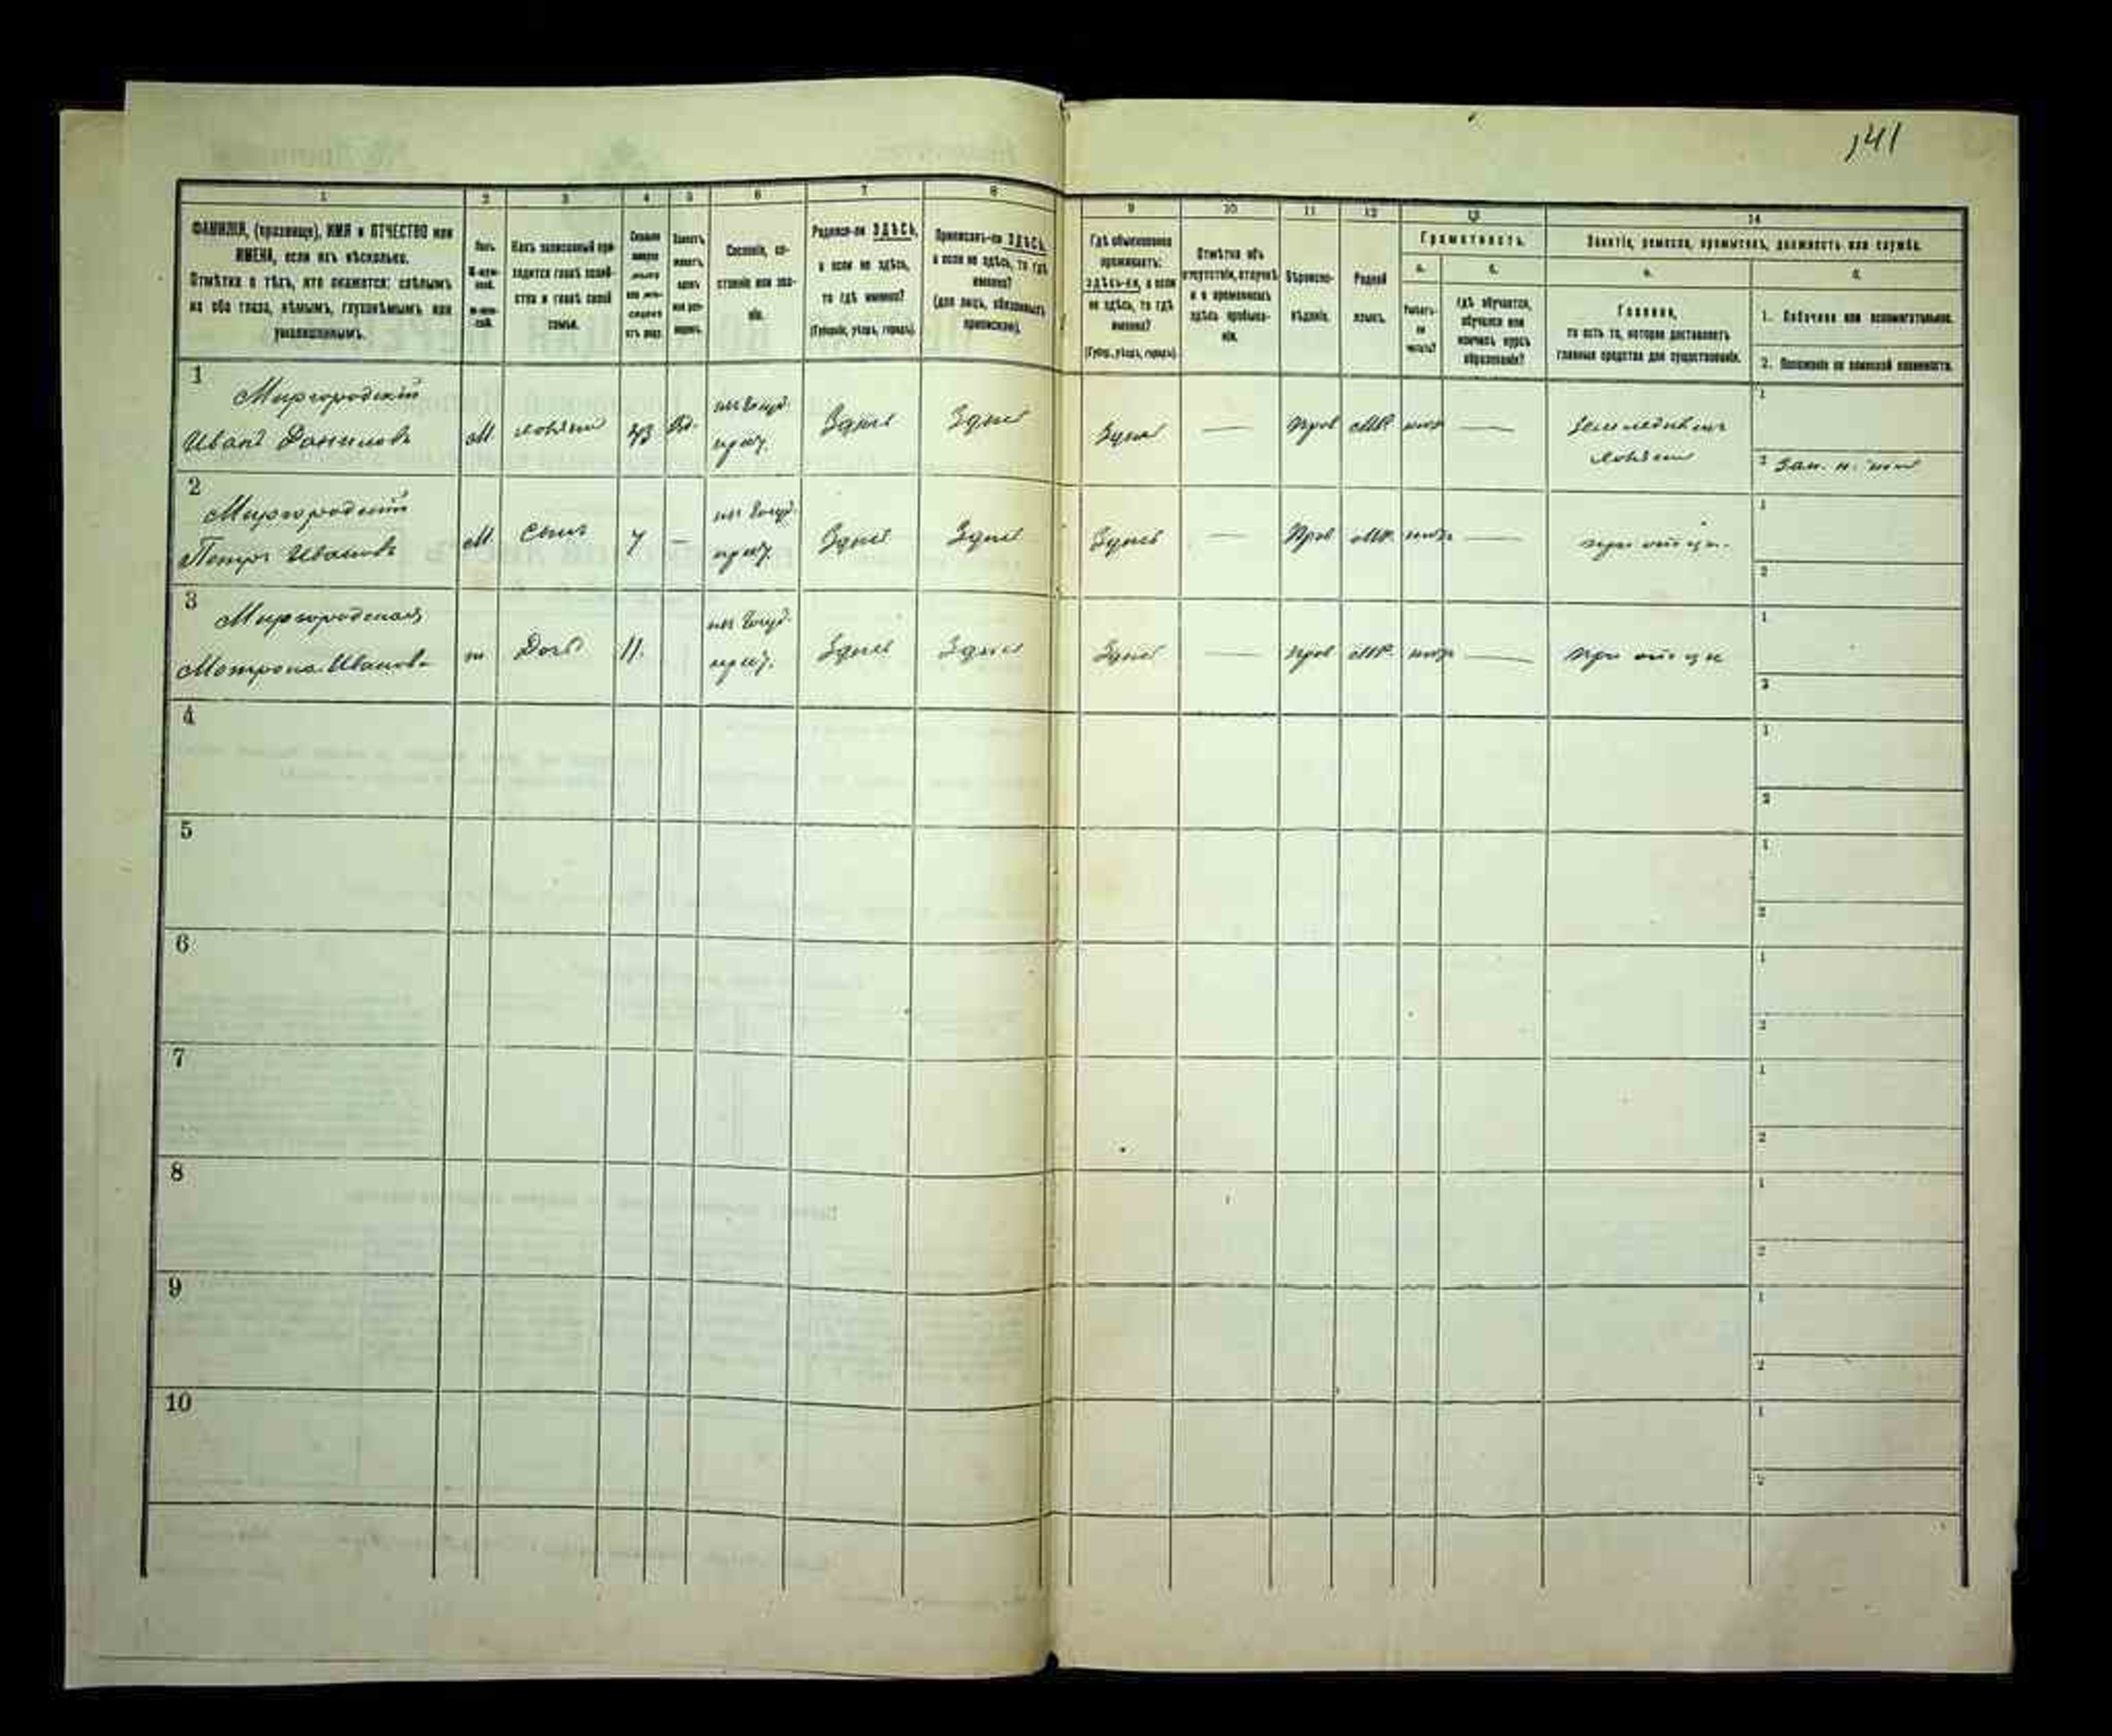 141
1
2
3
4
5
6
7
8
9
10
11
12
13
14
ФАМИЛІЯ, (прозвище), ИМЯ и ОТЧЕСТВО или
ИМЕНА, если ихъ нѣсколько.
Отмѣтка о тѣхъ, кто окажется: слѣпымъ
на оба глаза, нѣмымъ, глухонѣмымъ или
умалишеннымъ.
Полъ.
Какъ записанный при-
ходится главѣ хозяй-
ства и главѣ своей
семьи.
Сословіе, со-
стояніе или зва-
ніе.
Родился-ли ЗДѢСЬ,
а если не здѣсь,
то гдѣ именно?
(Губернія, уѣздъ, городъ).
Приписанъ-ли ЗДѢСЬ,
а если не здѣсь, то гдѣ
именно?
(для лицъ, обязанныхъ
припискою).
Гдѣ обыкновенно
проживаетъ:
ЗДѢСЬ-ЛИ, а если
не здѣсь, то гдѣ
именно?
(Губер., уѣздъ, городъ).
Отмѣтка объ
отсутствіи, отлучкѣ
и о временномъ
здѣсь пребыва-
ніи.
Вѣроиспо-
вѣданіе.
Родной
языкъ.
Грамотность.
а.
Умѣетъ-
ли
читать?
б.
Гдѣ обучается,
обучался или
кончилъ курсъ
образованія?
Занятіе, ремесло, промыселъ, должность или служба.
а.
Главное,
то есть то, которое доставляетъ
главныя средства для существованія.
б.
1. Побочное или вспомогательное.
2. Положеніе по воинской повинности.
1
Миргородскій
Иванъ Даниловъ
М.
хозяинъ
43
Вд.
Здѣсь
Здѣсь
Здѣсь
—
Прав
МР.
—
Земледѣлецъ
хозяинъ
1
2
2
Миргородскій
Петръ Ивановъ
М.
Сынъ
7
—
Здѣсь
Здѣсь
Здѣсь
—
Прав
МР.
—
при отцѣ.
1
2
3
Миргородская
Мотрона Иванов
ж
Дочь
11.
Здѣсь
Здѣсь
Здѣсь
—
Прав
МР.
—
при отцѣ
1
2
4
1
2
5
1
2
6
1
2
7
1
2
8
1
2
9
1
2
10
1
2